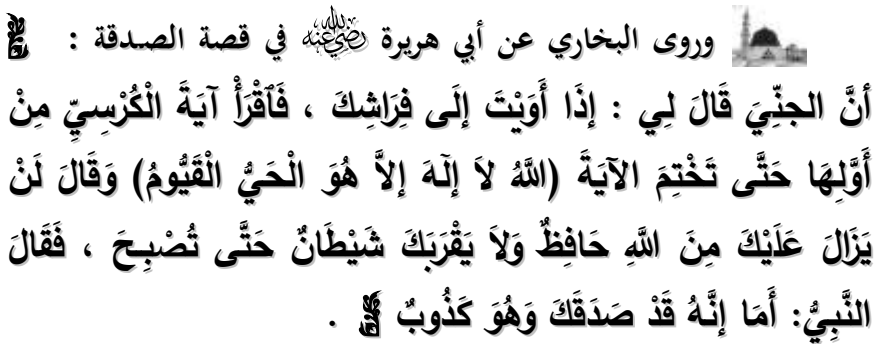 وروى البخاري عن أبي هريرة رضي الله عنه في قصة الصدقة :
أنَّ الجنِّيَ قَالَ لِي : إذَا أَوَيْتَ إلَى فِرَاشِكَ ، فَٱقْرَأْ آيَةَ الْكُرْسِيِّ مِنْ
أَوَّلِهَا حَتَّى تَخْتِمَ الآيَةَ (اللَّهُ لاَ إلَهَ إلاَّ هُوَ الْحَيُّ الْقَيُّومُ) وَقَالَ لَنْ
يَزَالَ عَلَيْكَ مِنَ اللَّهِ حَافِظٌ وَلاَ يَقْرَبَكَ شَيْطَانٌ حَتَّى تُصْبِحَ ، فَقَالَ
النَّبِيُّ: أَمَا إنَّهُ قَدْ صَدَقَكَ وَهُوَ كَذُوبٌ .